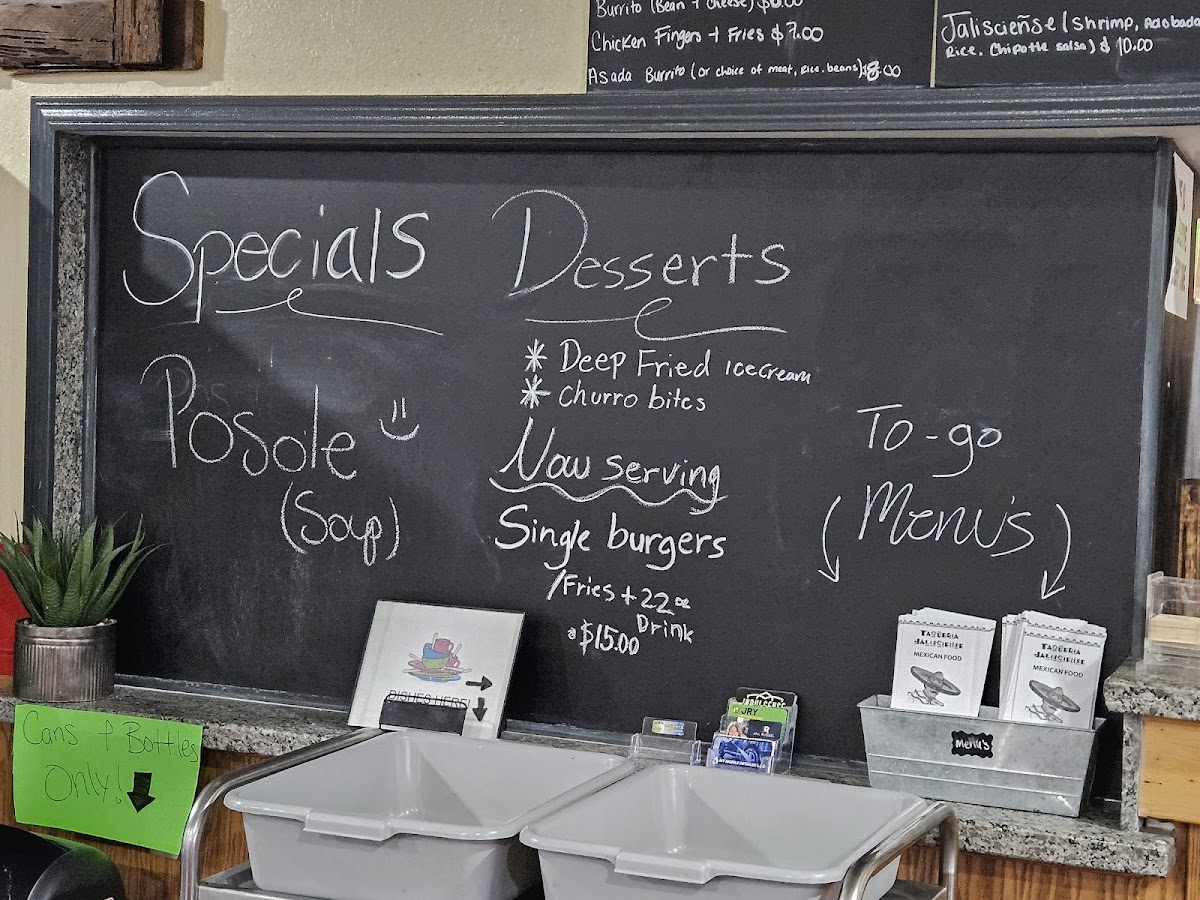 Burrito (Bean + Cheese)
Chicken Fingers + Fries $7.00
Asada Burrito (or choice of meat, Rice, beans) $8.00
Jalisciense (Shrimp, Adobada
Rice, Chipotle salsa) $10.00
Specials
Posole
(Soup)
Desserts
* Deep Fried icecream
* Churro bites
Now serving
Single burgers
/Fries + 22 oz
Drink
$15.00
To-go
Menu's
DISHES HERE!
Cans + Bottles
Only!
JRY
TAQUERIA
JALISCIENSE
MEXICAN FOOD
TAQUERIA
JALISCIENSE
MEXICAN FOOD
Menu's